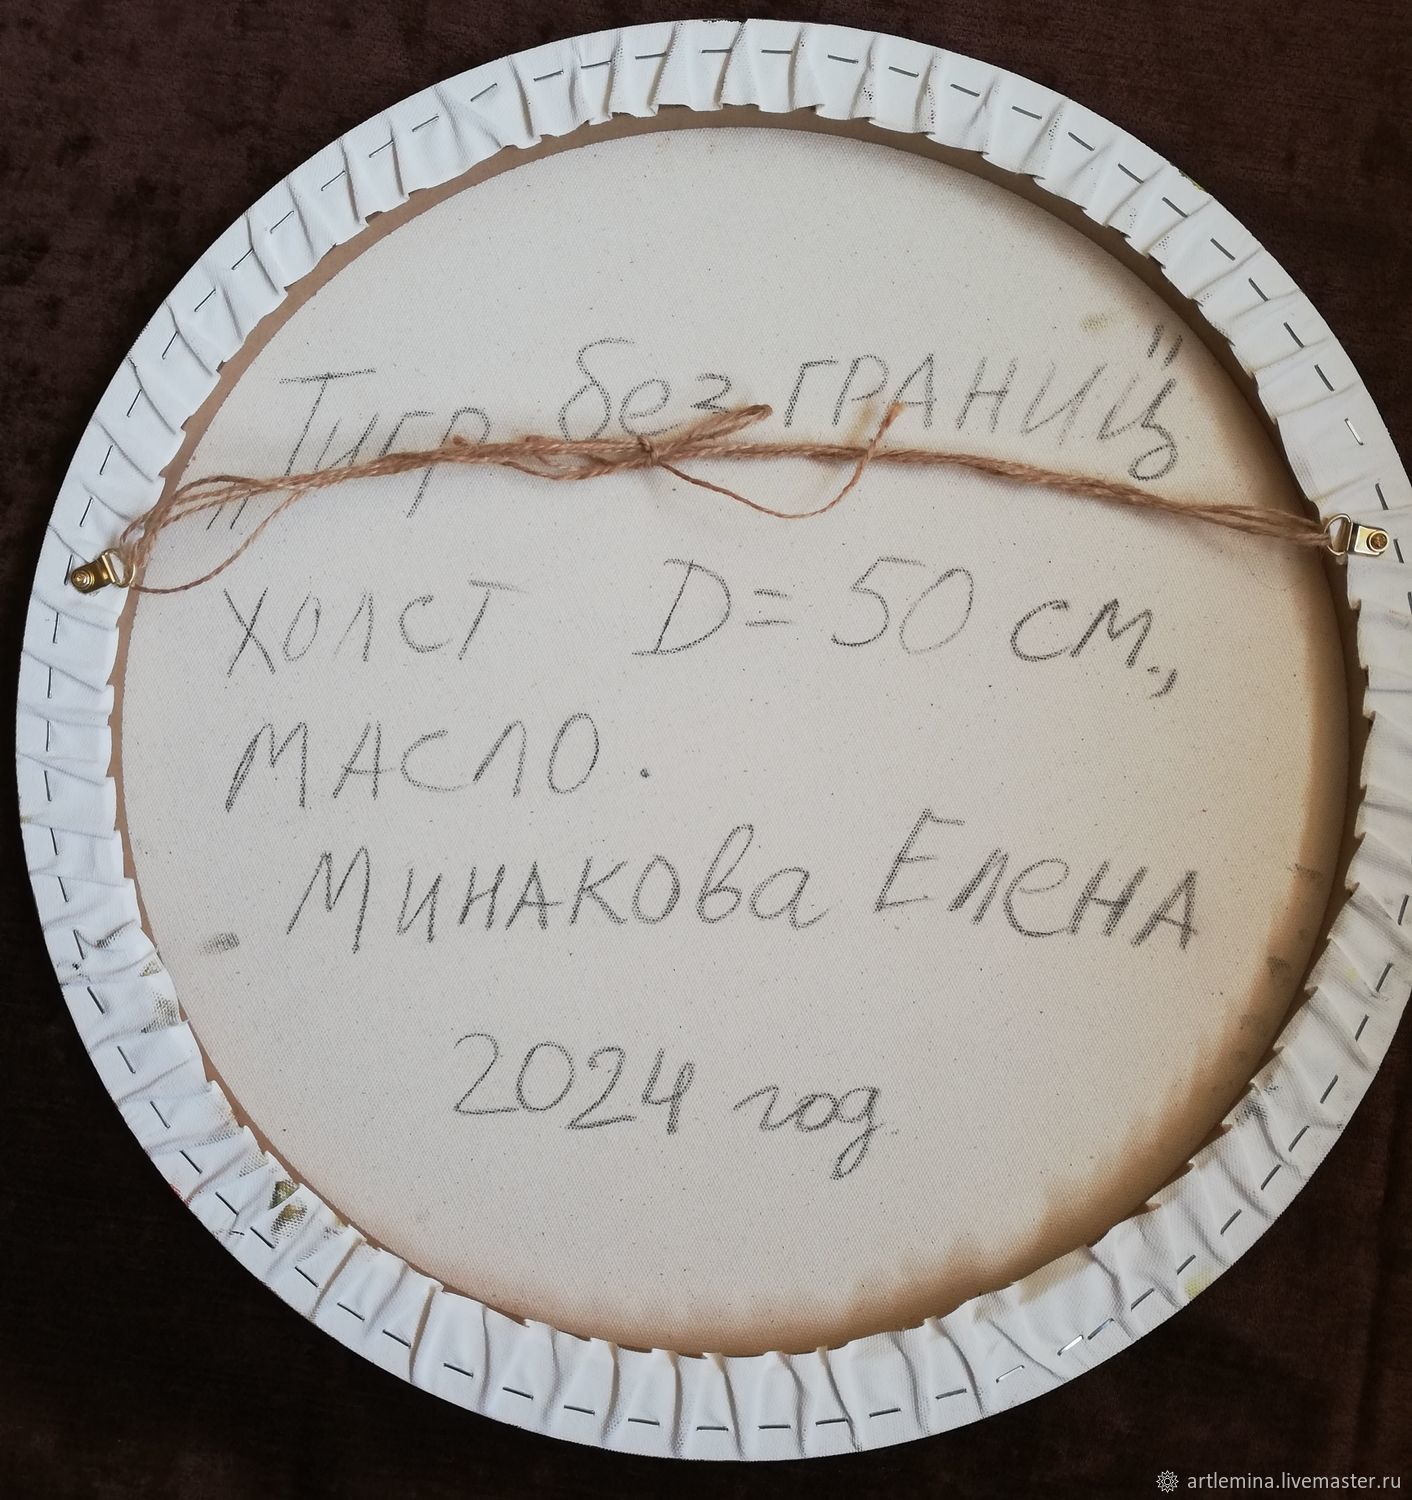 „Тигр без границ"
холст D=50 см.,
масло.
Минакова Елена
2024 год
artlemina.livemaster.ru